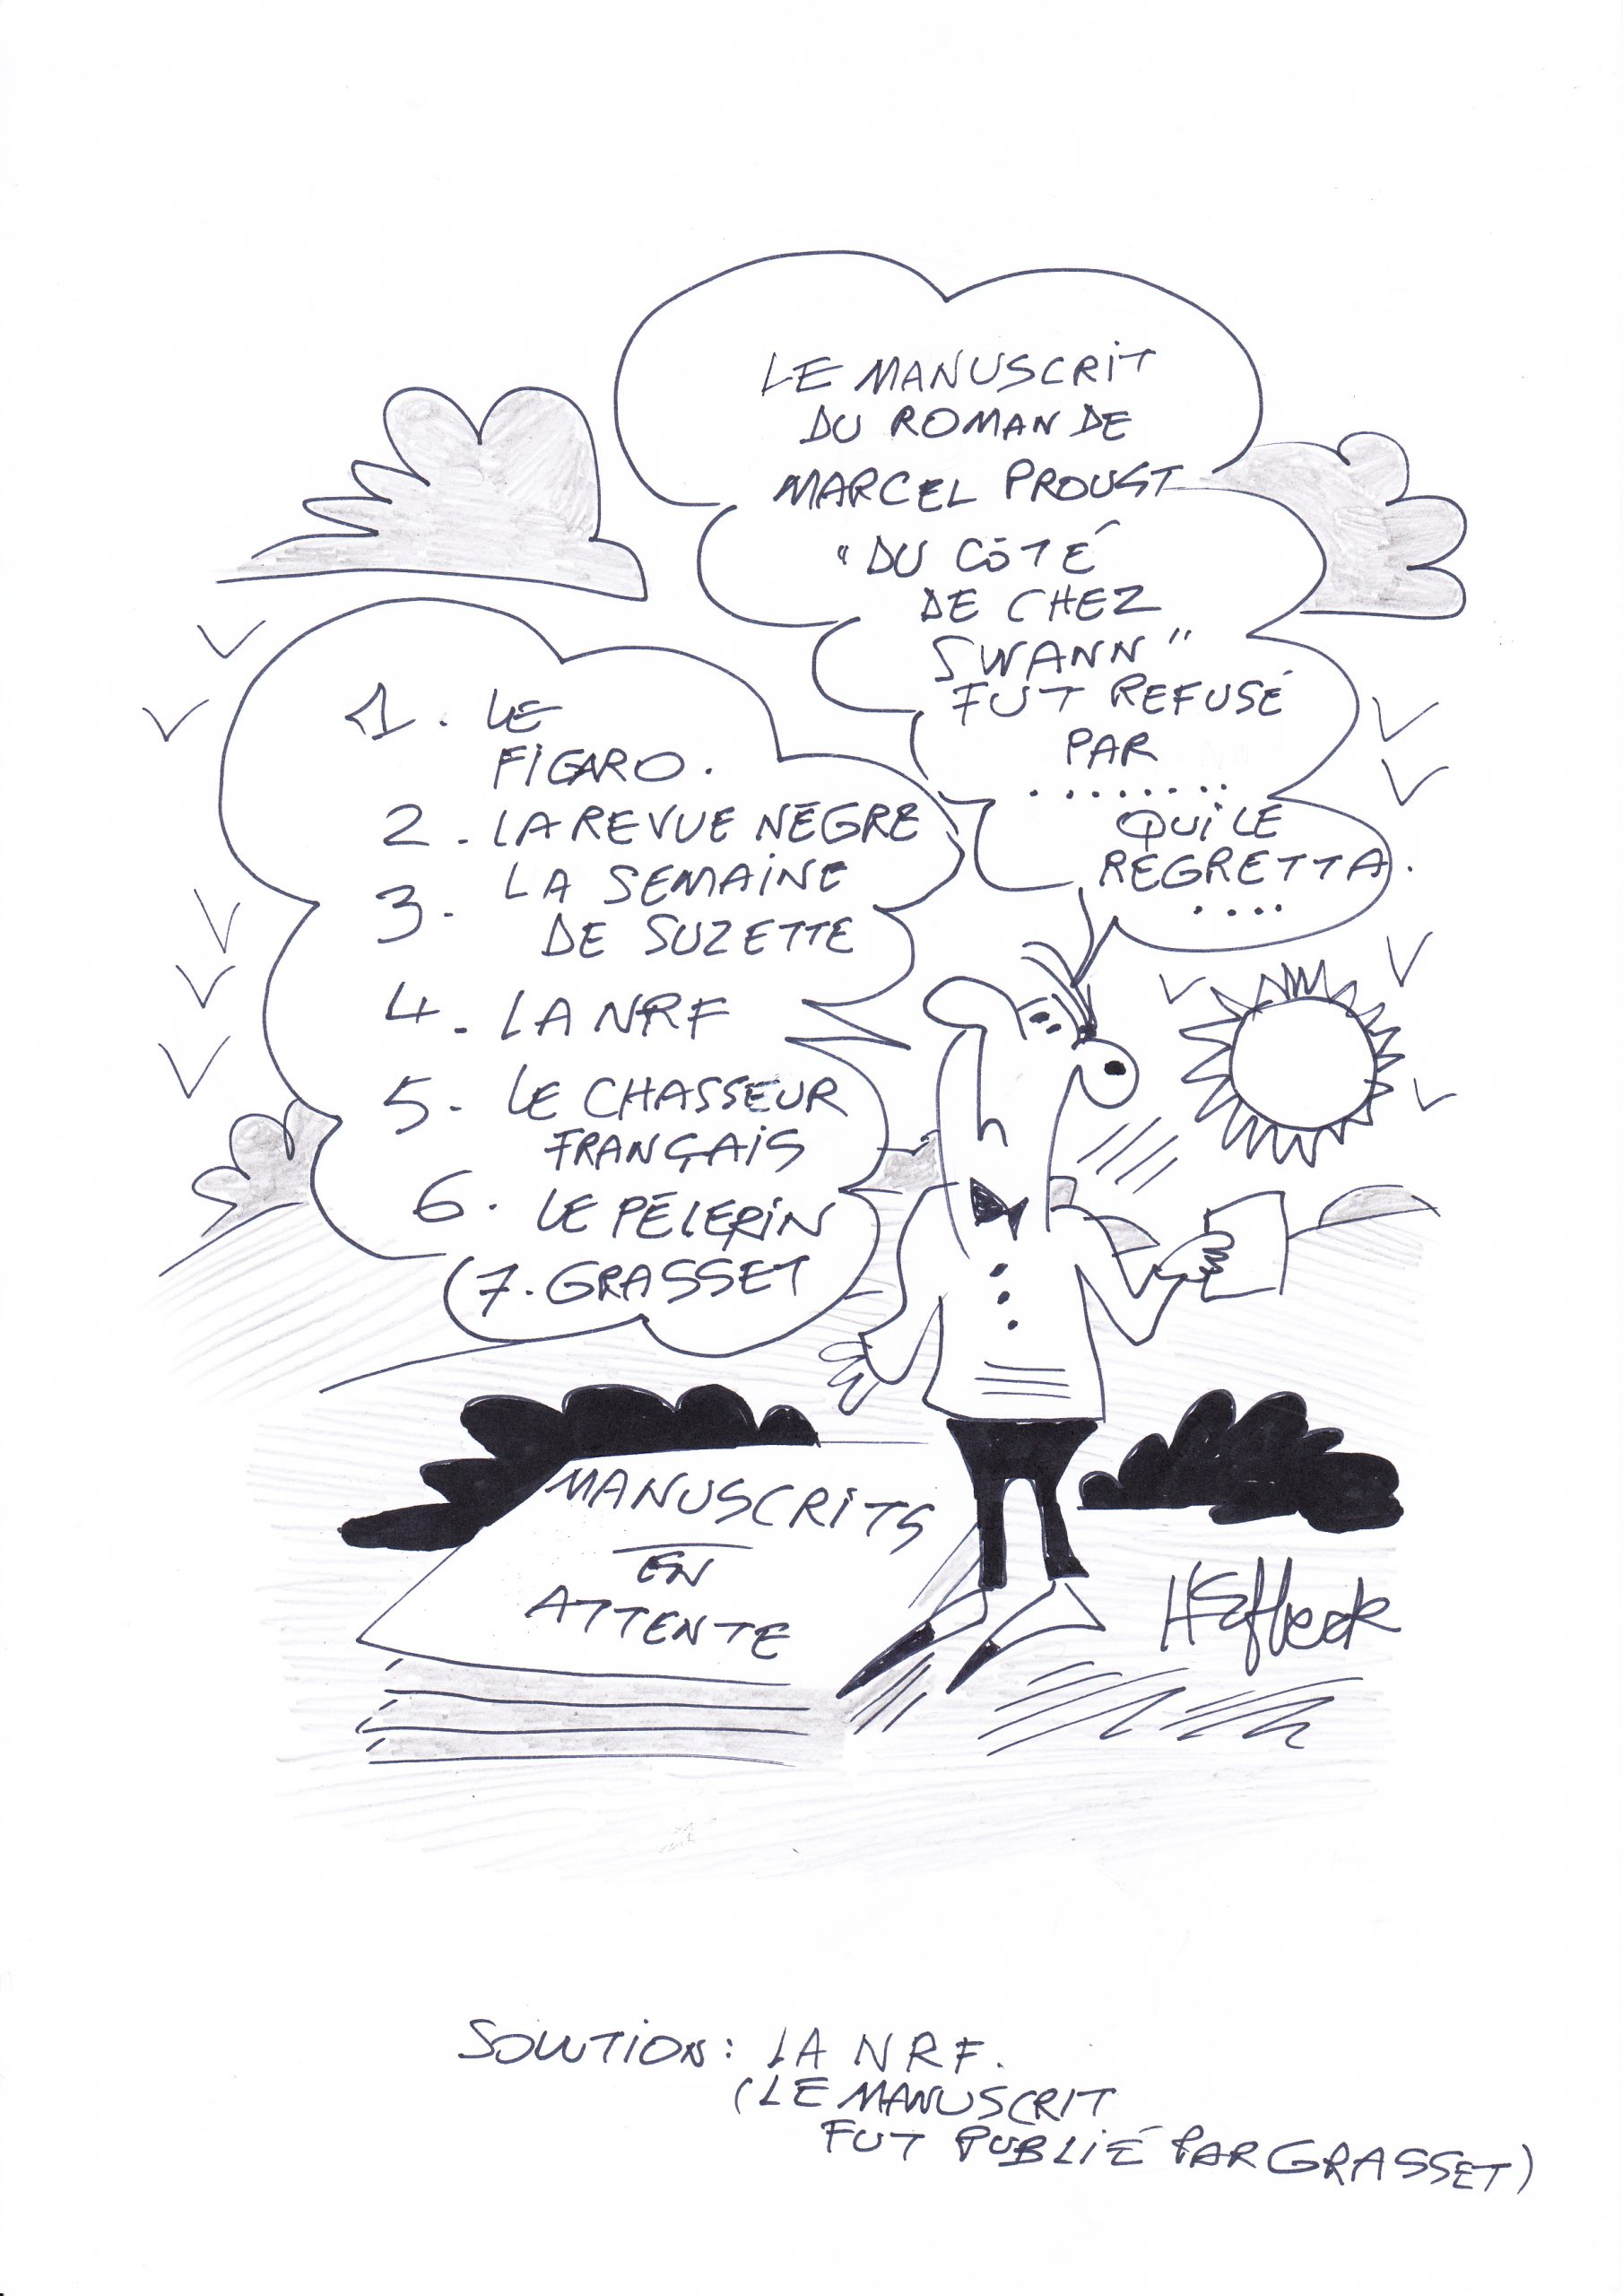 LE MANUSCRIT
DU ROMAN DE
MARCEL PROUST
"DU CÔTÉ
DE CHEZ
SWANN"
FUT REFUSÉ
PAR
........
QUI LE
REGRETTA.
....
1. LE
FIGARO.
2. LA REVUE NÈGRE
3. LA SEMAINE
DE SUZETTE
4. LA NRF
5. LE CHASSEUR
FRANÇAIS
6. LE PÉLERIN
(7. GRASSET
MANUSCRITS
EN
ATTENTE
SOLUTION: LA NRF.
(LE MANUSCRIT
FUT PUBLIÉ PAR GRASSET)